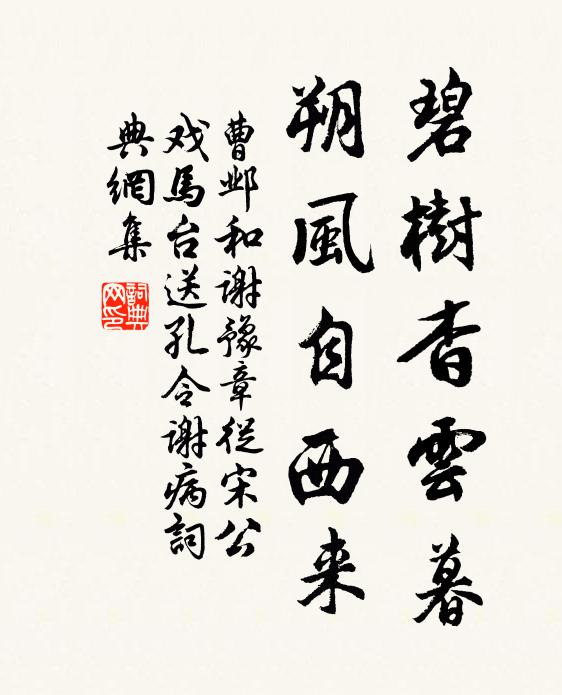 碧樹杳雲暮
朔風自西来
曹邺和谢豫章從宋公
戏馬台送孔令谢病詞
典網集
詞典网印